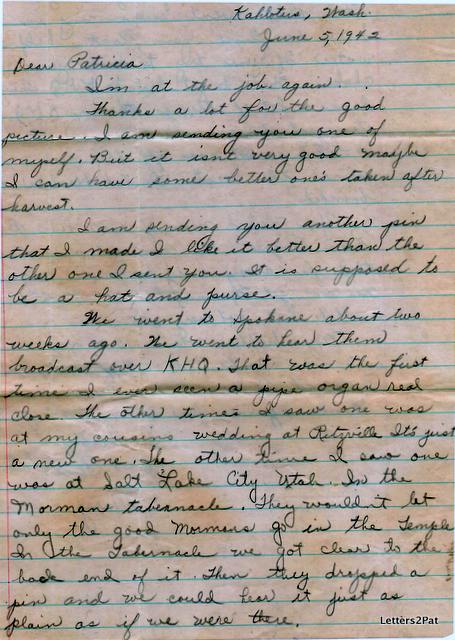 Kahlotus, Wash.
June 5, 1942
Dear Patricia
I'm at the job again.
Thanks a lot for the good
picture. I am sending you one of
myself. But it isnt very good maybe
I can have some better one's taken after
harvest.
I am sending you another pin
that I made I like it better than the
other one I sent you. It is supposed to
be a hat and purse.
We went to Spokane about two
weeks ago. We went to hear them
broadcast over KHQ. That was the first
time I ever seen a pipe organ real
close. The other times I saw one was
at my cousins wedding at Ritzville It's just
a new one. The other time I saw one
was at Salt Lake City Utah. In the
Morman tabernacle. They wouldn't let
only the good Mormons go in the Temple
In the Tabernacle we got clear to the
back end of it. Then they dropped a
pin and we could hear it just as
plain as if we were there.
Letters2Pat